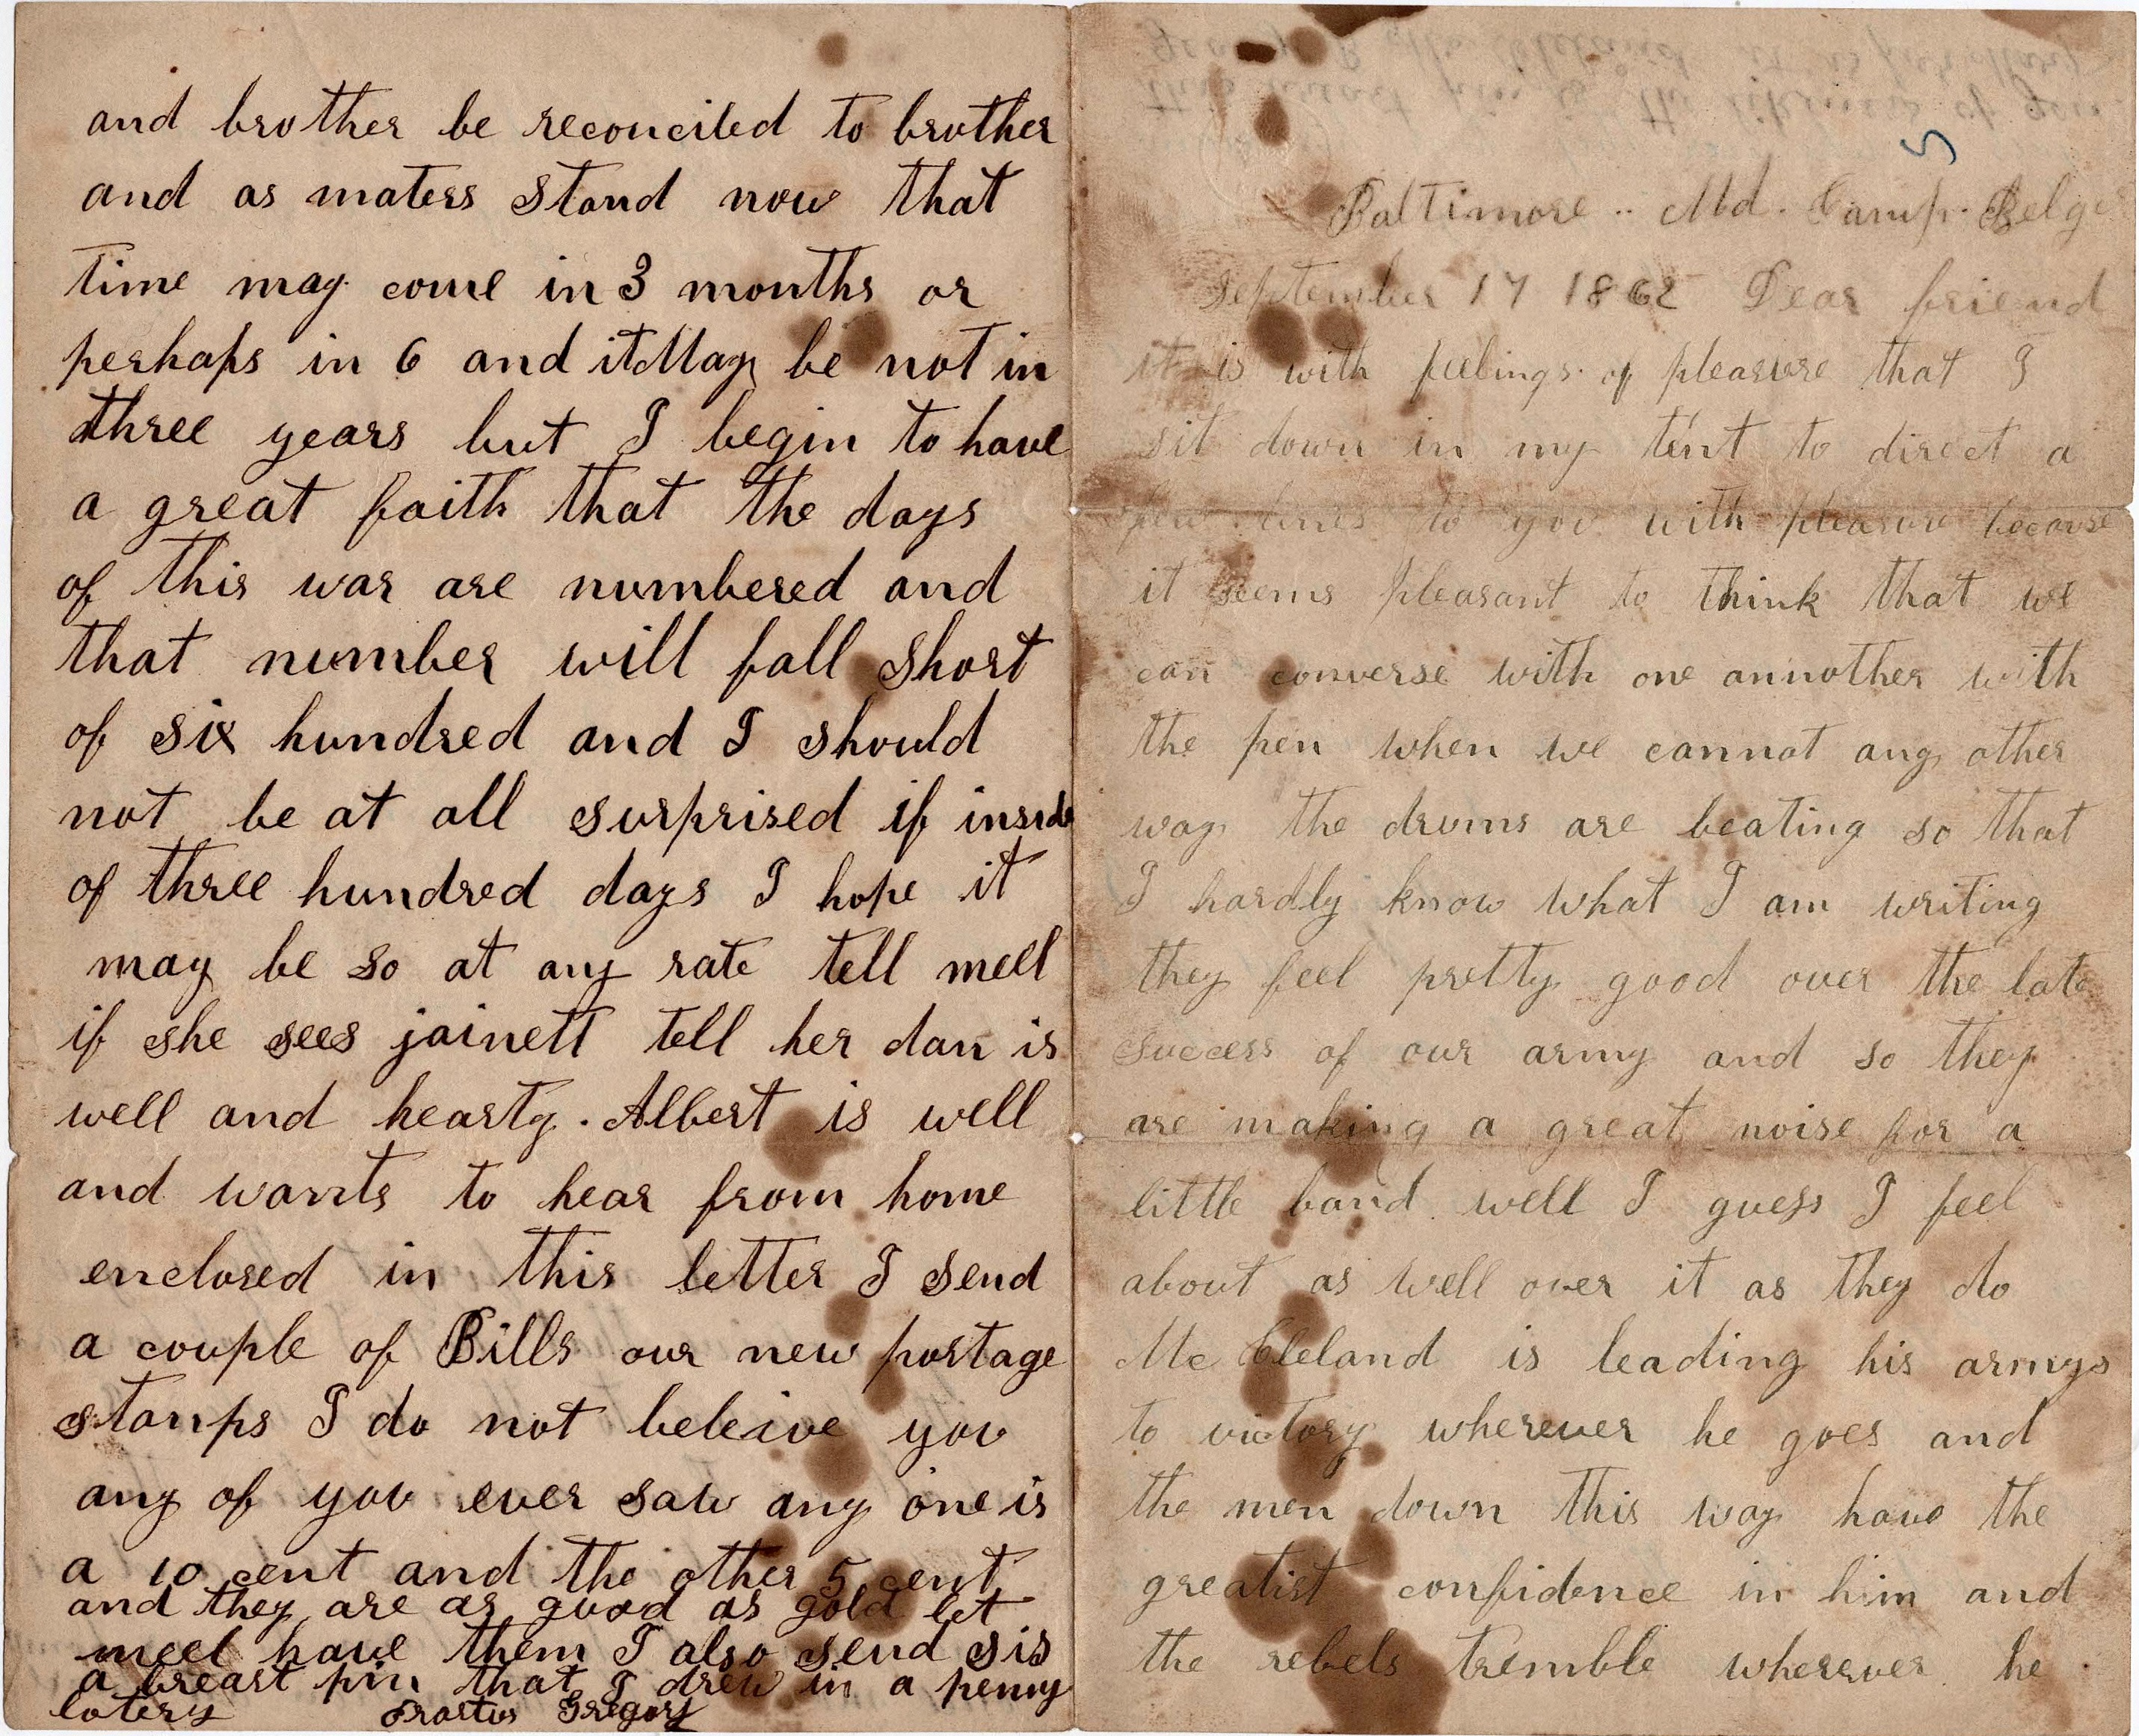 and brother be reconciled to brother
and as maters stand now that
time may come in 3 months or
perhaps in 6 and it May be not in
three years but I begin to have
a great faith that the days
of this war are numbered and
that number will fall short
of six hundred and I should
not be at all surprised if inside
of three hundred days I hope it
may be so at any rate tell mell
if she sees jainett tell her dan is
well and hearty. Albert is well
and wants to hear from home
enclosed in this letter I send
a couple of Bills our new postage
stamps I do not beleive you
any of you ever saw any one is
a 10 cent and the other 5 cent
and they are as good as gold let
meel have them I also send sis
a breast pin that I drew in a penny
lotery Erastus Gregory
Baltimore .. Md. Camp. Belge
September 17 1862 Dear friend
it is with feelings of pleasure that I
sit down in my tent to direct a
few lines to you with pleasure because
it seems pleasant to think that we
can converse with one annother with
the pen when we cannot any other
way the drums are beating so that
I hardly know what I am writing
they feel pretty good over the late
success of our army and so they
are making a great noise for a
little band well I guess I feel
about as well over it as they do
Mc Cleland is leading his armys
to victory wherever he goes and
the men down this way have the
greatist confidence in him and
the rebels tremble wherever he